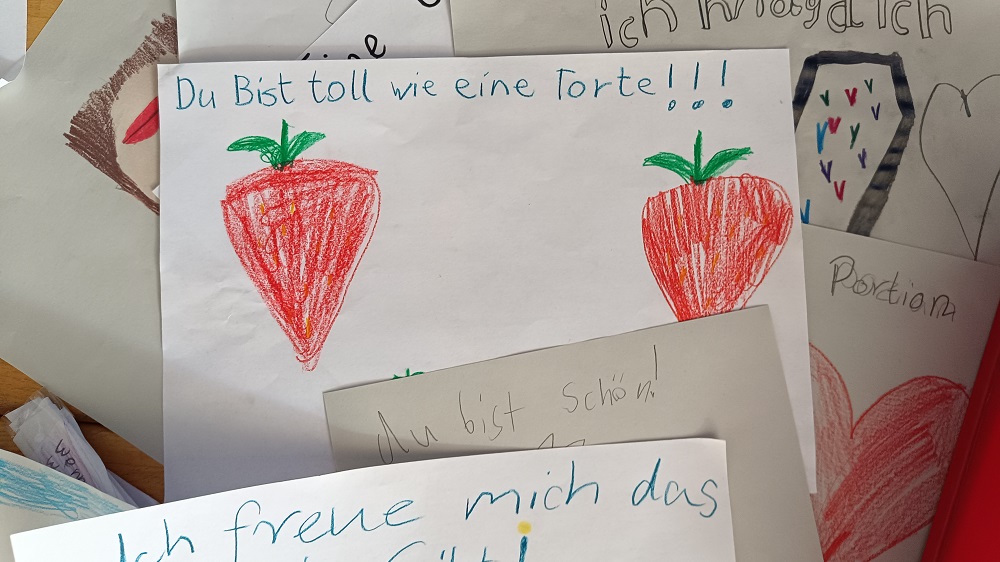 ich mag dich
ine
Du Bist toll wie eine Torte!!!
Portion
du bist schön!
Ich freue mich das